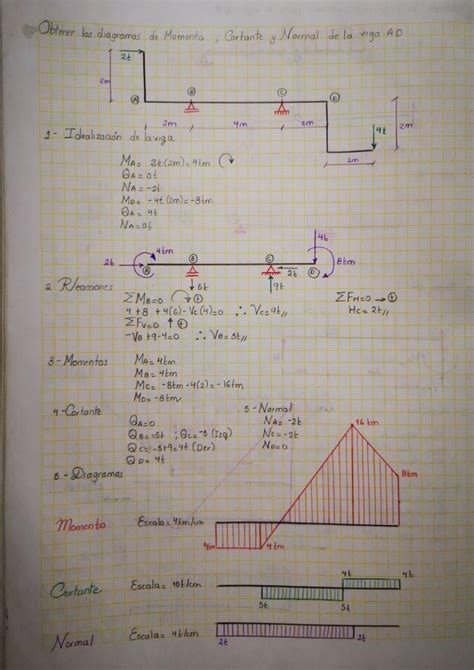 Obtener los diagramas de Momento, Cortante y Normal de la viga AD
2t
2m
A
B
C
D
2m
4m
2m
4t
2m
2m
1- Idealización de la viga
MA = 2t(2m) = 4tm
QA = 0t
NA = -2t
MD = -4t(2m) = -8tm
QA = 4t
NA = 0t
4t
4tm
2t
A
B
C
D
8tm
2t
9t
2 R/eacciones
ΣMB=0 ⊕
4 + 8 + 4(6) - VC(4) = 0 ∴ VC = 9t //
ΣFV=0 ↑⊕
-VB+9-4=0 ∴ VB = 5t //
ΣFH=0 → ⊕
HC = 2t //
3-Momentos
MA = 4tm
MB = 4tm
MC = -8tm - 4(2) = -16tm
MD = -8tm
4-Cortante
QA=0
QB=-5t ; QC=-5 (Izq)
QC=-5+9=4t (Der)
QD = 4t
5-Normal
NA = -2t
NC = -2t
ND = 0
6-Diagramas
Momento Escala = 4tm/cm
16 tm
8tm
4tm
4tm
Cortante Escala = 10t/cm
4t
4t
5t
5t
Normal Escala = 4t/cm
2t
2t